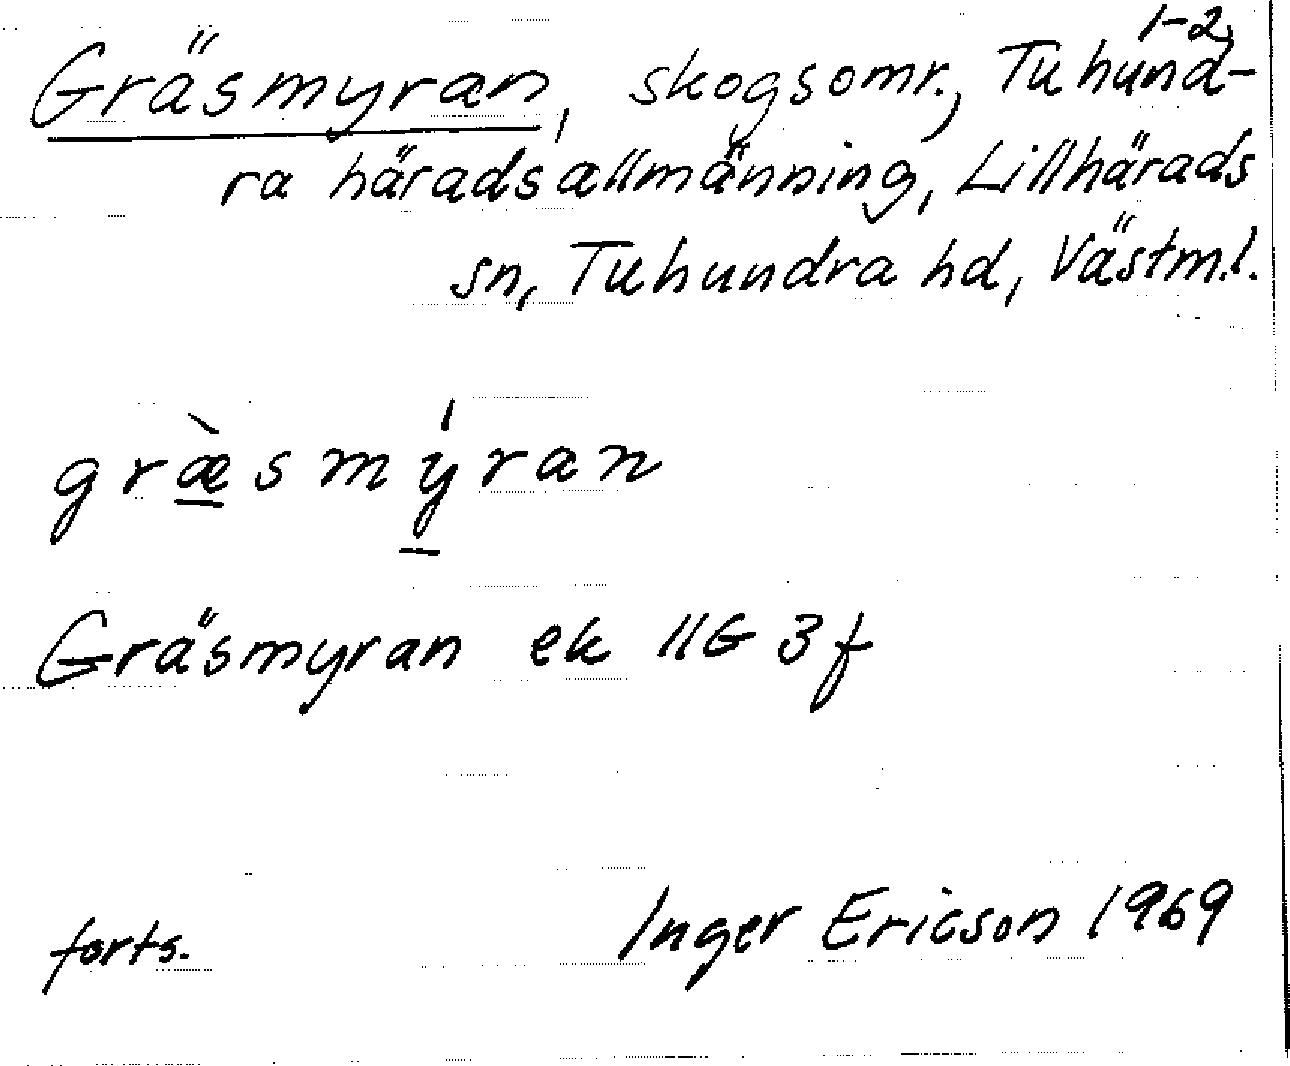 1-2
Gräsmyran, skogsomr., Tuhund-
ra häradsallmänning, Lillhärads
sn, Tuhundra hd, Västml.
græ̀smýran
Gräsmyran ek 11G 3f
forts.
Inger Ericson 1969